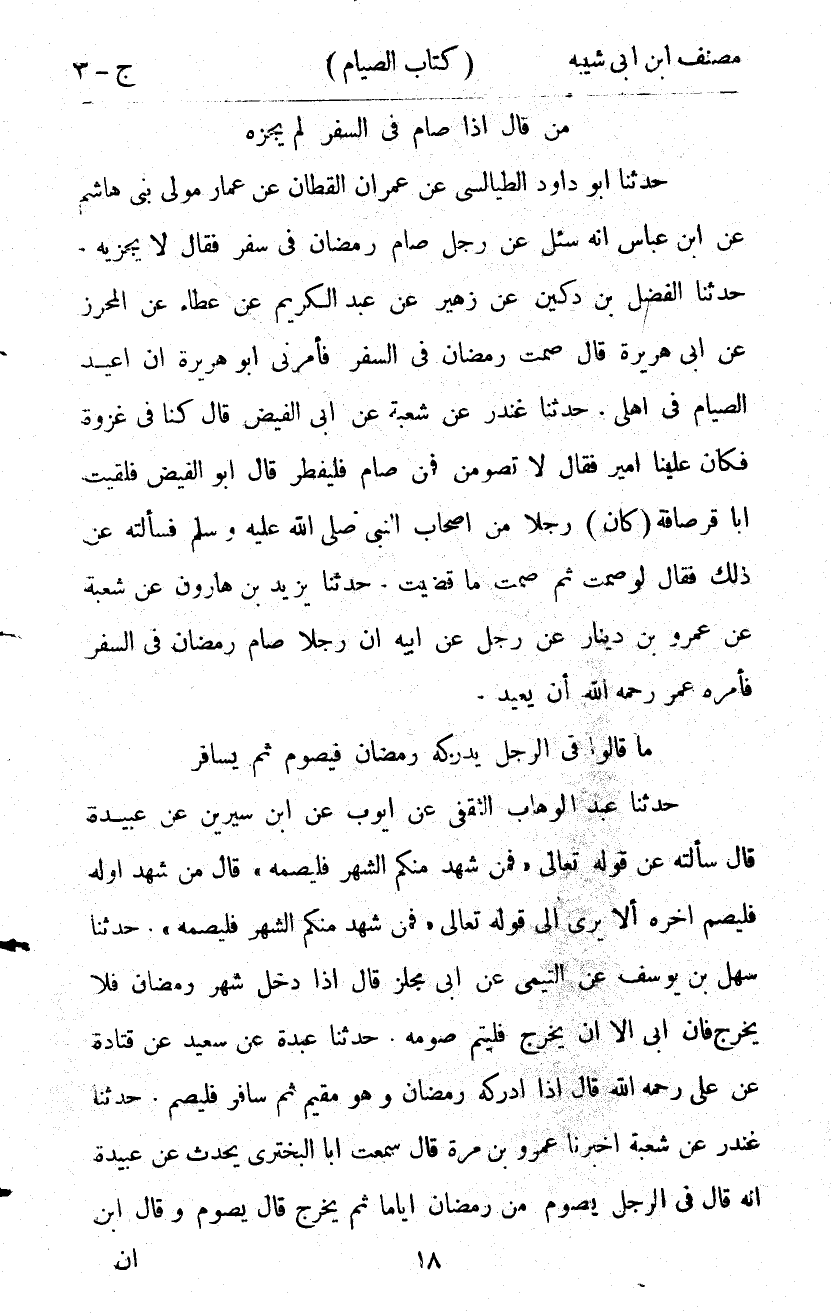 مصنف ابن ابى شيبه ( كتاب الصيام ) ج - ٣
من قال اذا صام فى السفر لم يجزه
حدثنا ابو داود الطيالسى عن عمران القطان عن عمار مولى بنى هاشم
عن ابن عباس انه سئل عن رجل صام رمضان فى سفر فقال لا يجزيه .
حدثنا الفضل بن دكين عن زهير عن عبد الكريم عن عطاء عن المحرز
عن ابى هريرة قال صمت رمضان فى السفر فأمرنى ابو هريرة ان اعيد
الصيام فى اهلى . حدثنا غندر عن شعبة عن ابى الفيض قال كنا فى غزوة
فكان علينا امير فقال لا تصومن فمن صام فليفطر قال ابو الفيض فلقيت
ابا قرصافة (كان) رجلا من اصحاب النبى صلى الله عليه و سلم فسألته عن
ذلك فقال لو صمت ثم صمت ما قضيت . حدثنا يزيد بن هارون عن شعبة
عن عمرو بن دينار عن رجل عن ابيه ان رجلا صام رمضان فى السفر
فأمره عمر رحمه الله أن يعيد .
ما قالوا فى الرجل يدركه رمضان فيصوم ثم يسافر
حدثنا عبد الوهاب الثقفى عن ايوب عن ابن سيرين عن عبيدة
قال سألته عن قوله تعالى « فمن شهد منكم الشهر فليصمه » قال من شهد اوله
فليصم اخره ألا يرى الى قوله تعالى « فمن شهد منكم الشهر فليصمه » . حدثنا
سهل بن يوسف عن التيمى عن ابى مجلز قال اذا دخل شهر رمضان فلا
يخرج فان ابى الا ان يخرج فليتم صومه . حدثنا عبدة عن سعيد عن قتادة
عن على رحمه الله قال اذا ادركه رمضان و هو مقيم ثم سافر فليصم . حدثنا
غندر عن شعبة اخبرنا عمرو بن مرة قال سمعت ابا البخترى يحدث عن عبيدة
انه قال فى الرجل يصوم من رمضان اياما ثم يخرج قال يصوم و قال ابن
١٨ ان